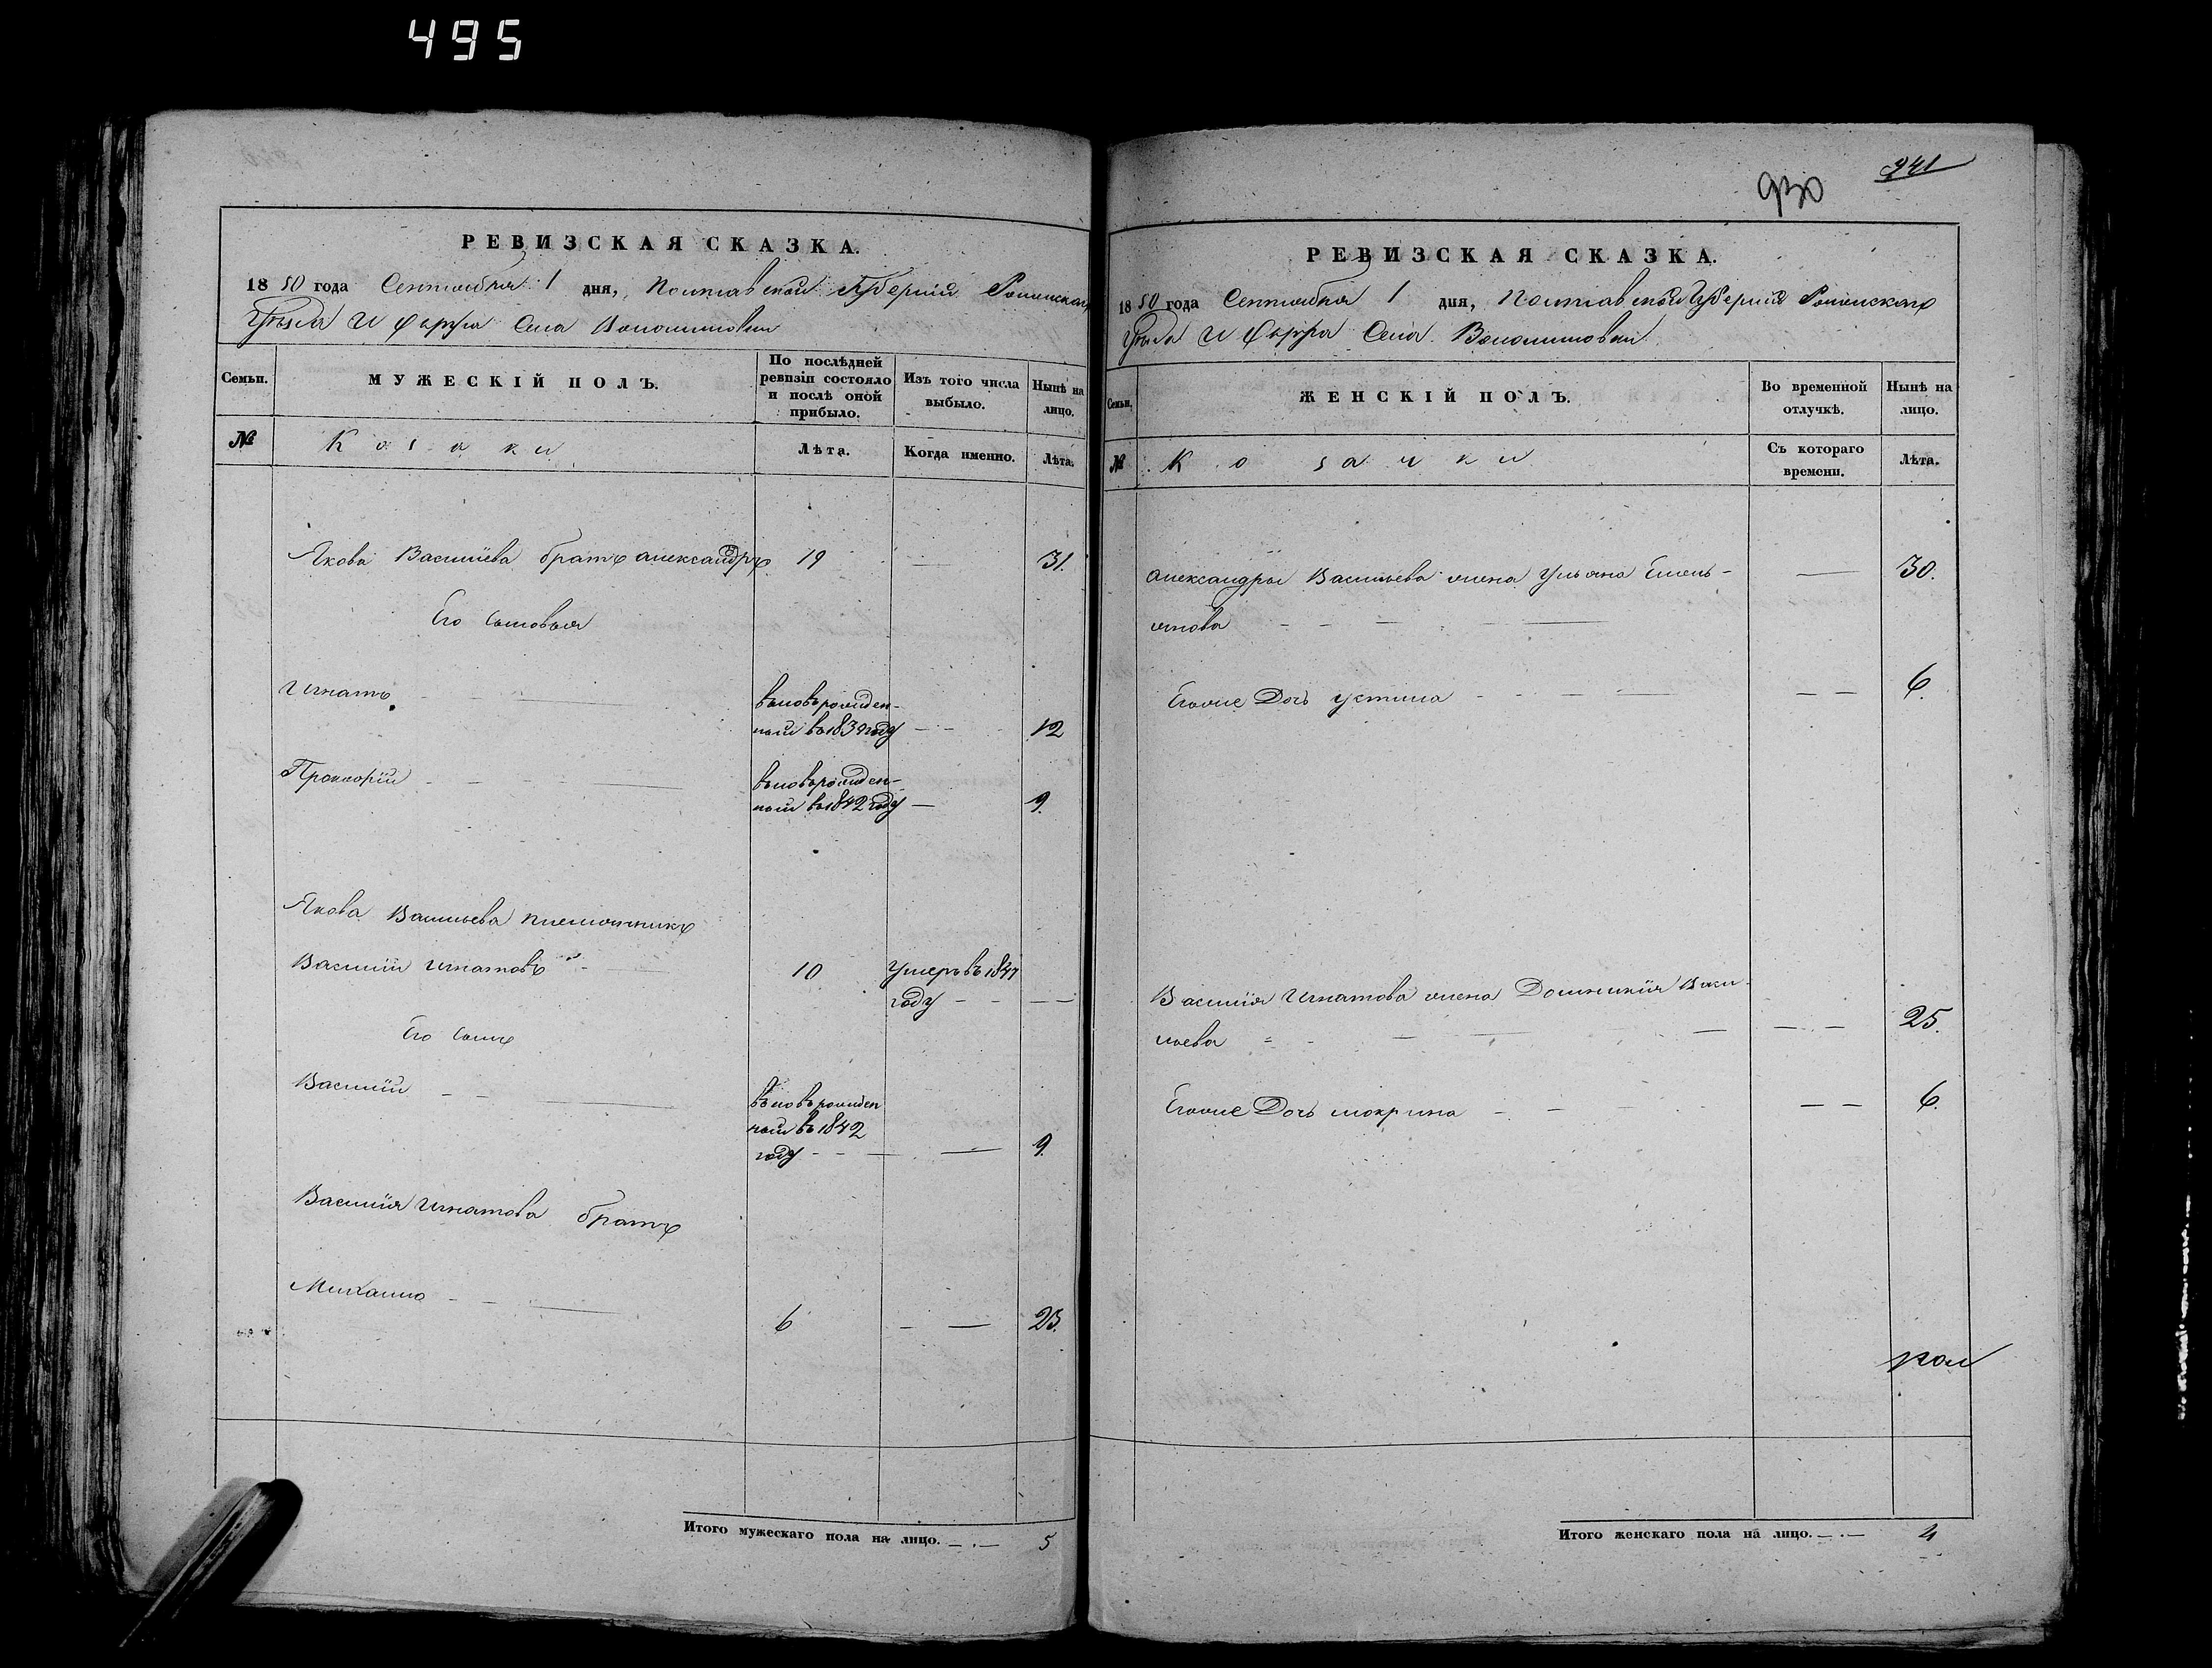 495
241
930
РЕВИЗСКАЯ СКАЗКА.
1850 года Сентября 1 дня, Полтавской Губерніи Роменскаго
Уѣзда И Округа Села Волошиновки
Семьи.
МУЖЕСКІЙ ПОЛЪ.
По послѣдней ревизіи состояло и послѣ оной прибыло.
Изъ того числа выбыло.
Нынѣ на лицо.
№
Козаки
Лѣта.
Когда именно.
Лѣта.
Якова Василіева братъ александръ 19 — 31.
Его сыновья
Игнатъ
вновьрожден-
ный въ 1839 году — 12
Прокофій
вновьрожден-
ный въ 1842 году — 9.
Якова Васильева племянникъ
Василій Игнатовъ 10 Умеръ въ 1847
году — —
Его сынъ
Василій
вновьрожден
ный въ 1842
году — — 9.
Василія Игнатова братъ
Михаило
6 — — 23.
Итого мужескаго пола на лицо. 5
РЕВИЗСКАЯ СКАЗКА.
1850 года Сентября 1 дня, Полтавской Губерніи Роменскаго
Уѣзда И Округа Села Волошиновки
Семьи.
ЖЕНСКІЙ ПОЛЪ.
Во временной отлучкѣ.
Нынѣ на лицо.
№
Козачки
Съ котораго времени.
Лѣта.
александры Васильева жена Ульяна Емель- — 30.
янова
Егоже Дочь устина — — 6.
Василія Игнатова жена Домникія Васи-
льева — — 25.
Егоже Дочь мокрина — — 6.
Итого женскаго пола на лицо. 4